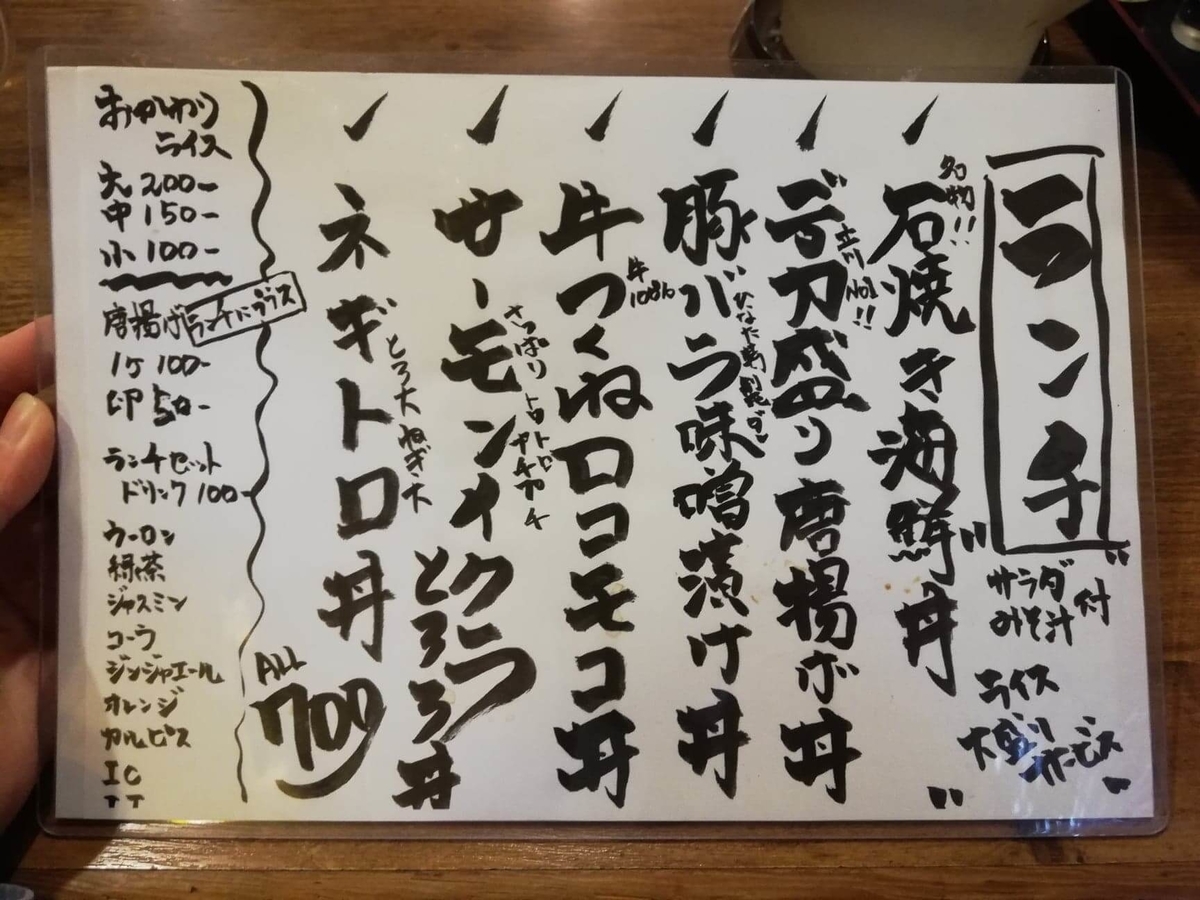 ランチ
サラダ
みそ汁 付
ライス
大盛り
サービス
名物!!
石焼き海鮮丼
立川No1!!
デカ盛り唐揚げ丼
豚バラ味噌漬け丼
牛100%
牛つくねロコモコ丼
さっぱり
サーモンイクラ
とろろ丼
とろ大ねぎ大
ネギトロ丼
ALL
700
おかわり
ライス
大 200-
中 150-
小 100-
ランチにプラス
唐揚げ
1ヶ 100-
卵 50-
ランチセット
ドリンク 100-
ウーロン
緑茶
ジャスミン
コーラ
ジンジャエール
オレンジ
カルピス
IC
IT